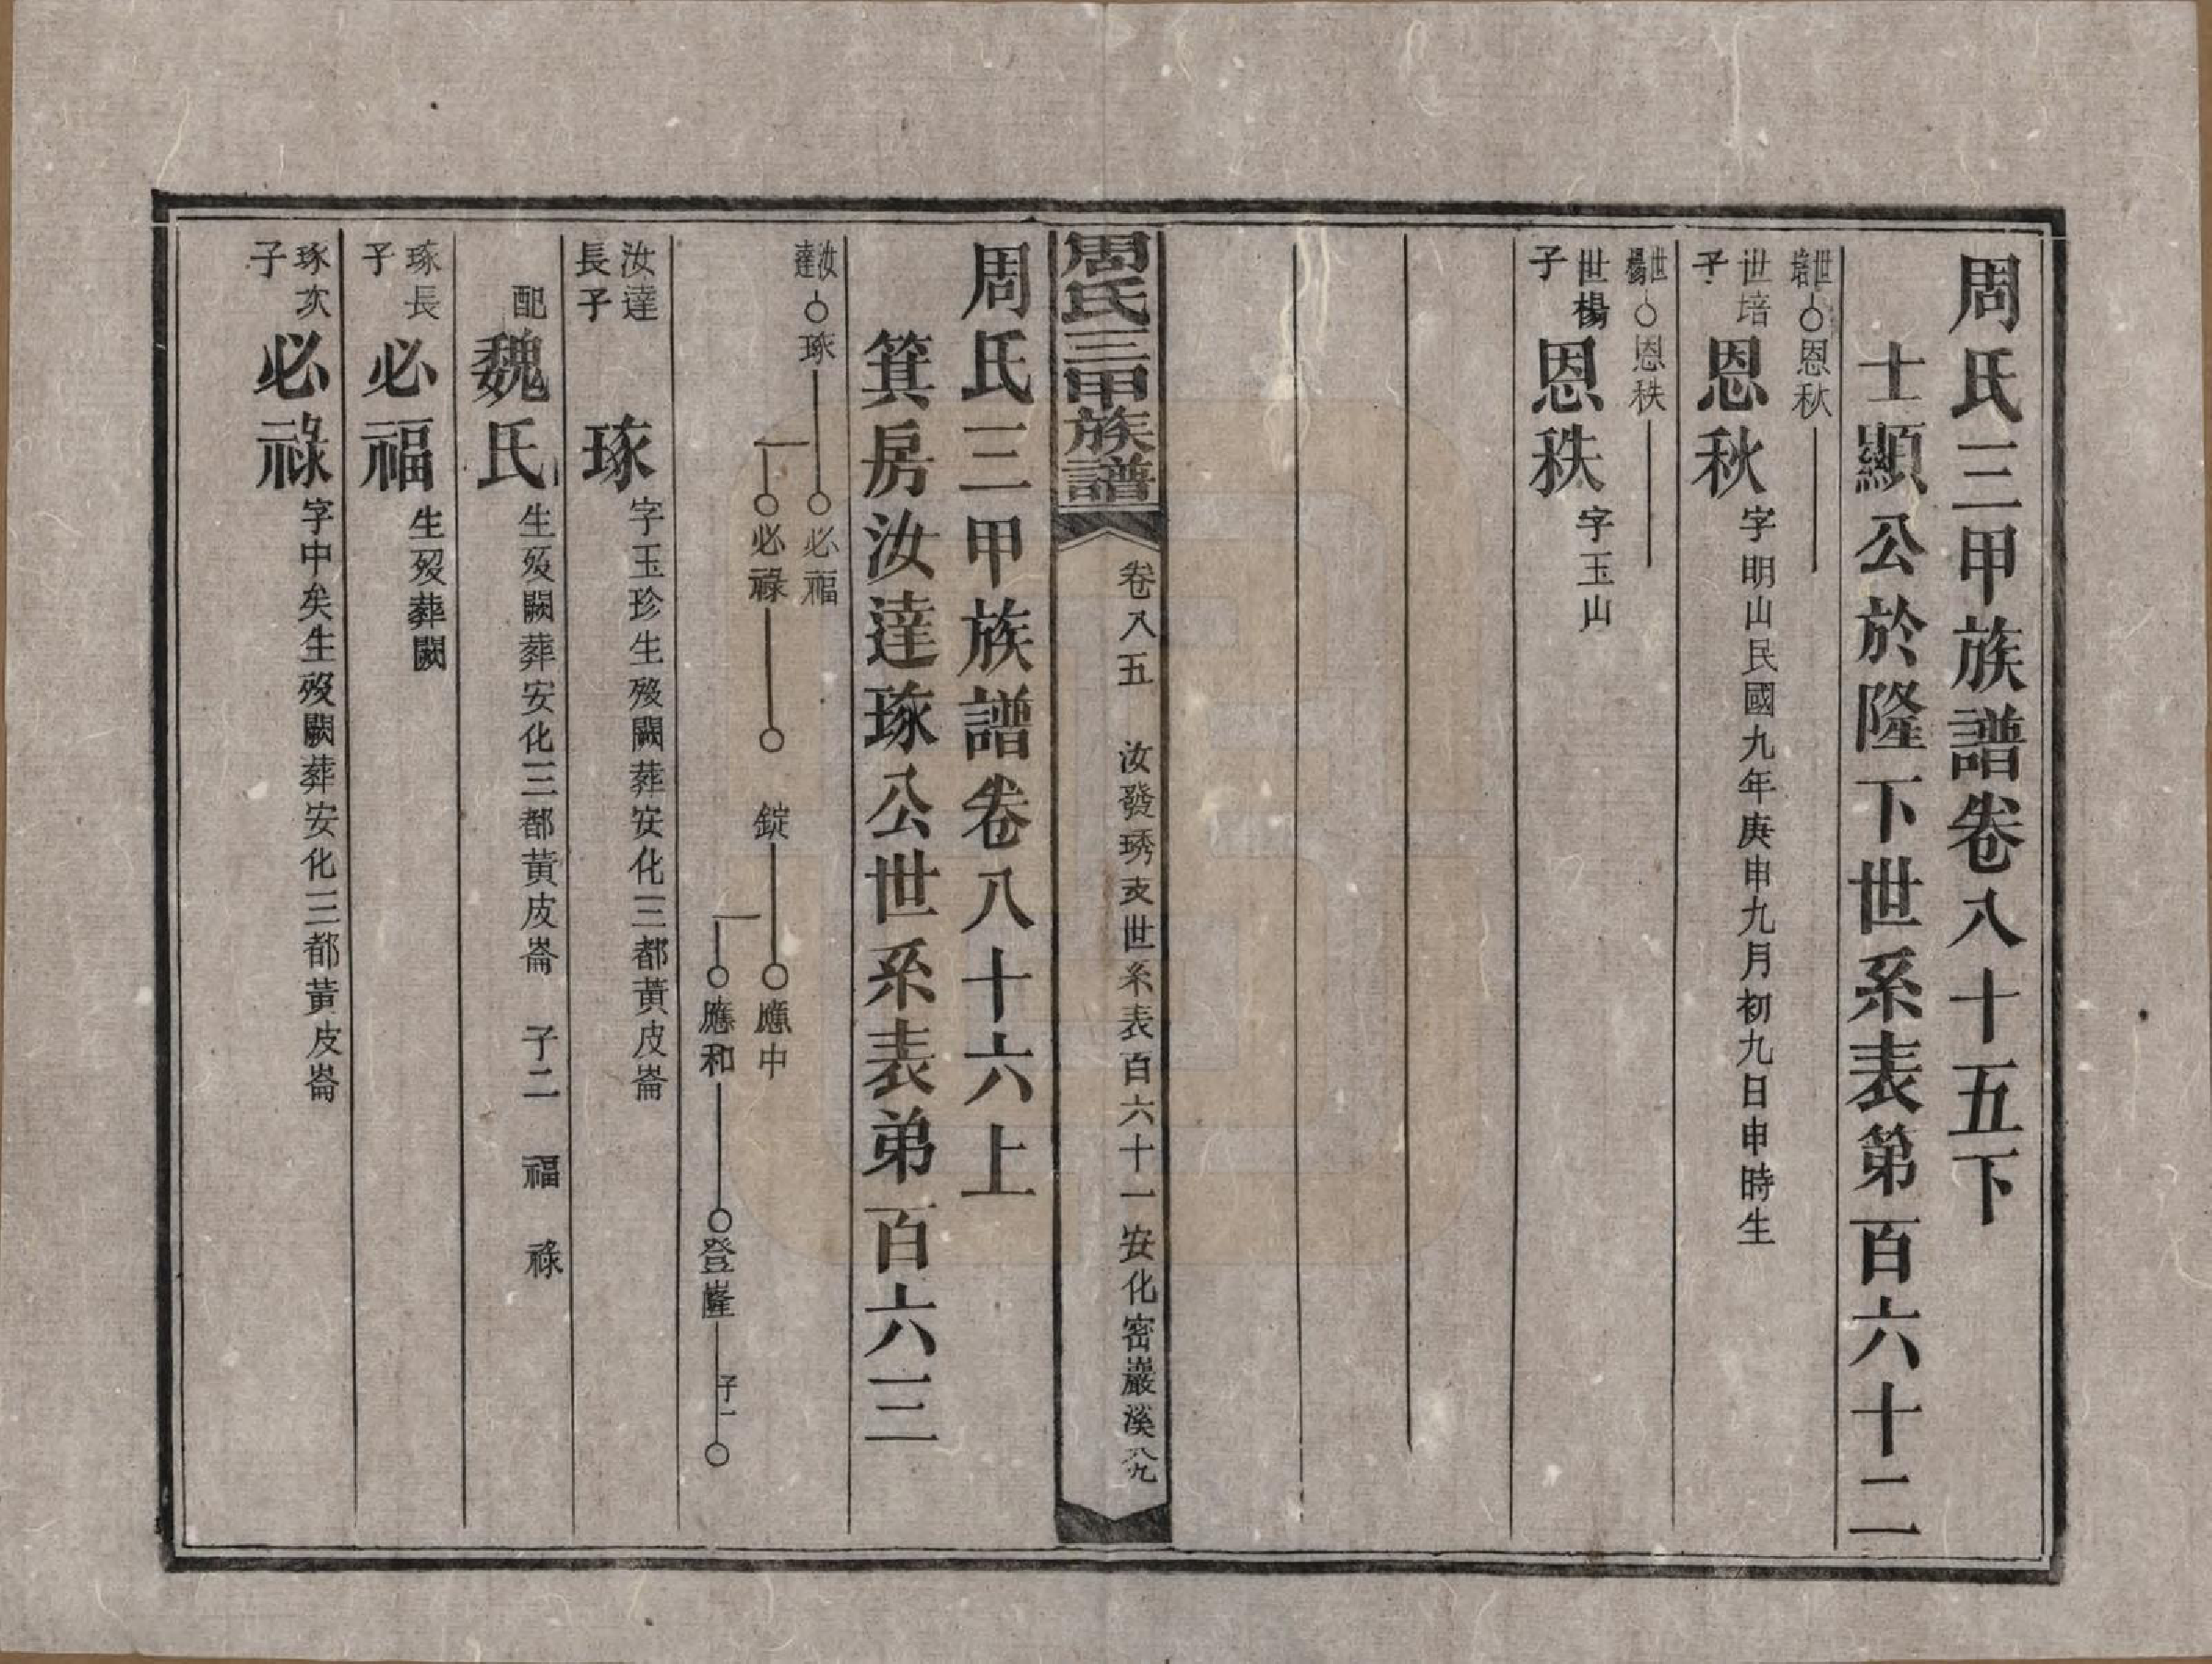 周氏三甲族譜卷八十五下
士顯公於隆下世系表第百六十二
世培 恩秋
世培子 恩秋 字明山民國九年庚申九月初九日申時生
世楊 恩秩
世楊子 恩秩 字玉山
周氏三甲族譜 卷八五 汝發琇支世系表百六十一安化密巖溪 八九
周氏三甲族譜卷八十六上
箕房汝達琢公世系表弟百六三
汝達 琢 必福
必祿 錠 應中
應和 登隆 子一
汝達長子 琢 字玉珍生歿闕葬安化三都黃皮崙
配魏氏 生歿闕葬安化三都黃皮崙 子二 福 祿
琢長子 必福 生歿葬闕
琢次子 必祿 字中矣生歿闕葬安化三都黃皮崙